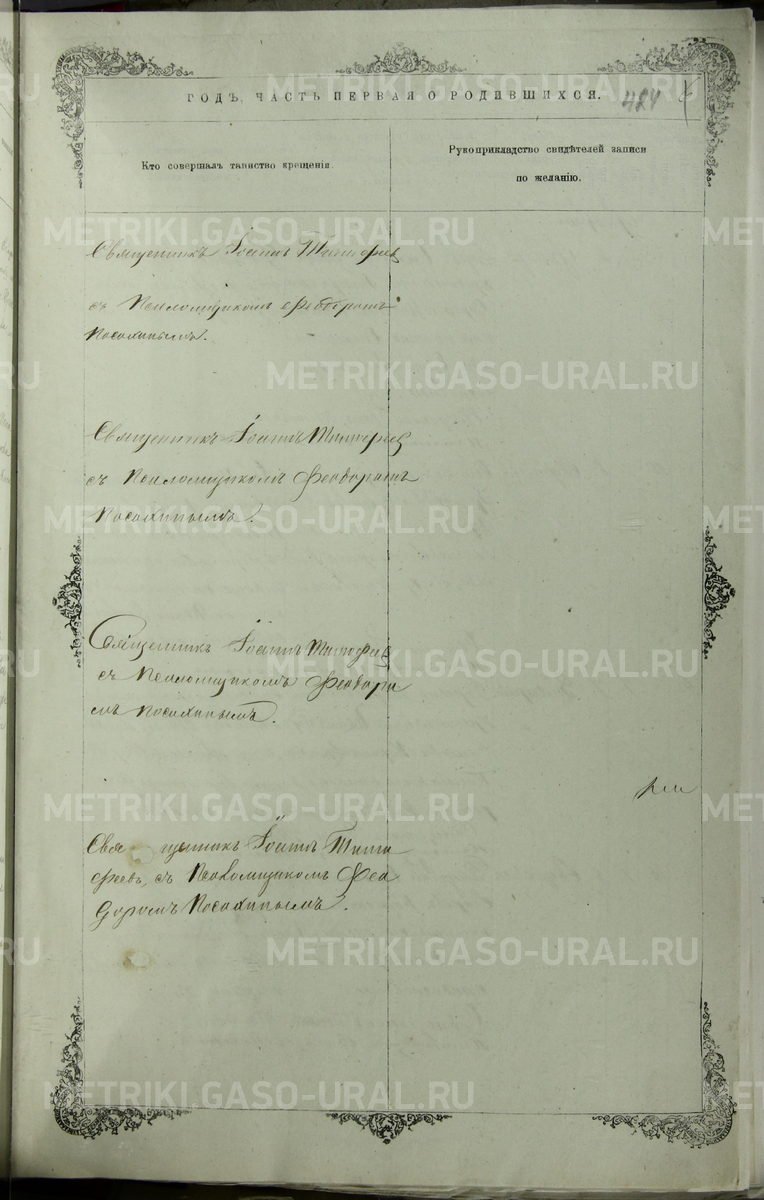 ГОДЪ, ЧАСТЬ ПЕРВАЯ О РОДИВШИХСЯ. 484
Кто совершалъ таинство крещенія.
Рукоприкладство свидѣтелей записи
по желанію.
Священникъ Іоаннъ Тимофеев
съ Псаломщикомъ Феодоромъ
Посохинымъ.
Священникъ Іоаннъ Тимофеев
съ Псаломщикомъ Феодоромъ
Посохинымъ.
Священникъ Іоаннъ Тимофеев
съ Псаломщикомъ Феодоро
мъ Посохинымъ.
Свя щенникъ Іоаннъ Тимо
феевъ, съ Псаломщикомъ Фео
доромъ Посохинымъ.
METRIKI.GASO-URAL.RU